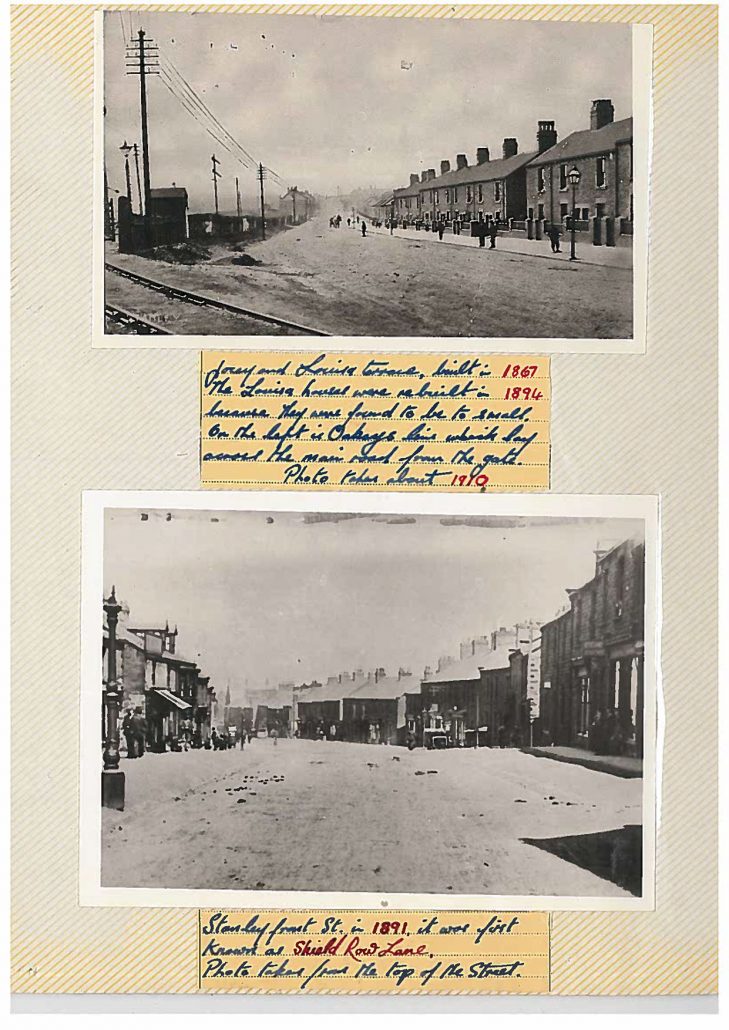 Josey and Louisa terrace, built in 1867
The Louisa houses were rebuilt in 1894
because they were found to be to small.
On the left is Oakeys line which lay
across the main road from the gate.
Photo taken about 1910
Stanley front St. in 1891, it was first
Known as Shield Row Lane.
Photo taken from the top of the Street.